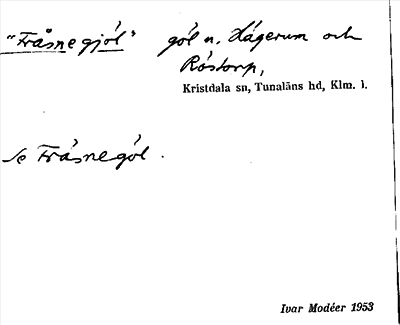 "Fråsnegjól" gól n. Hágerum och
Róstorp,
Kristdala sn, Tunaläns hd, Klm. l.
Se Fråsnegól.
Ivar Modéer 1953